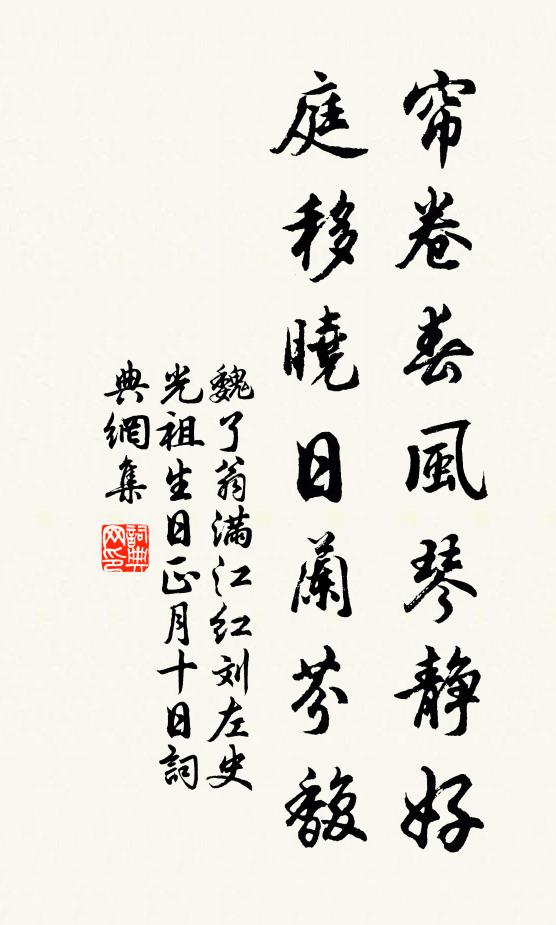 帘卷春風琴靜好
庭移曉日蘭芬馥
魏了翁滿江红刘左史
光祖生日正月十日詞
典網集
詞典
网印